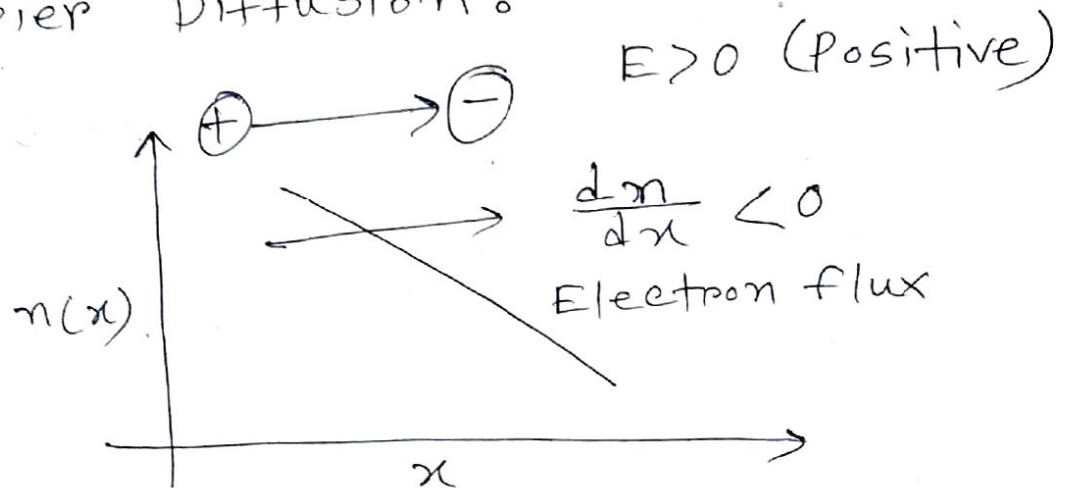 Diffusion:
E>0 (Positive)
⊕ → ⊖
dn/dx < 0
Electron flux
n(x)
x